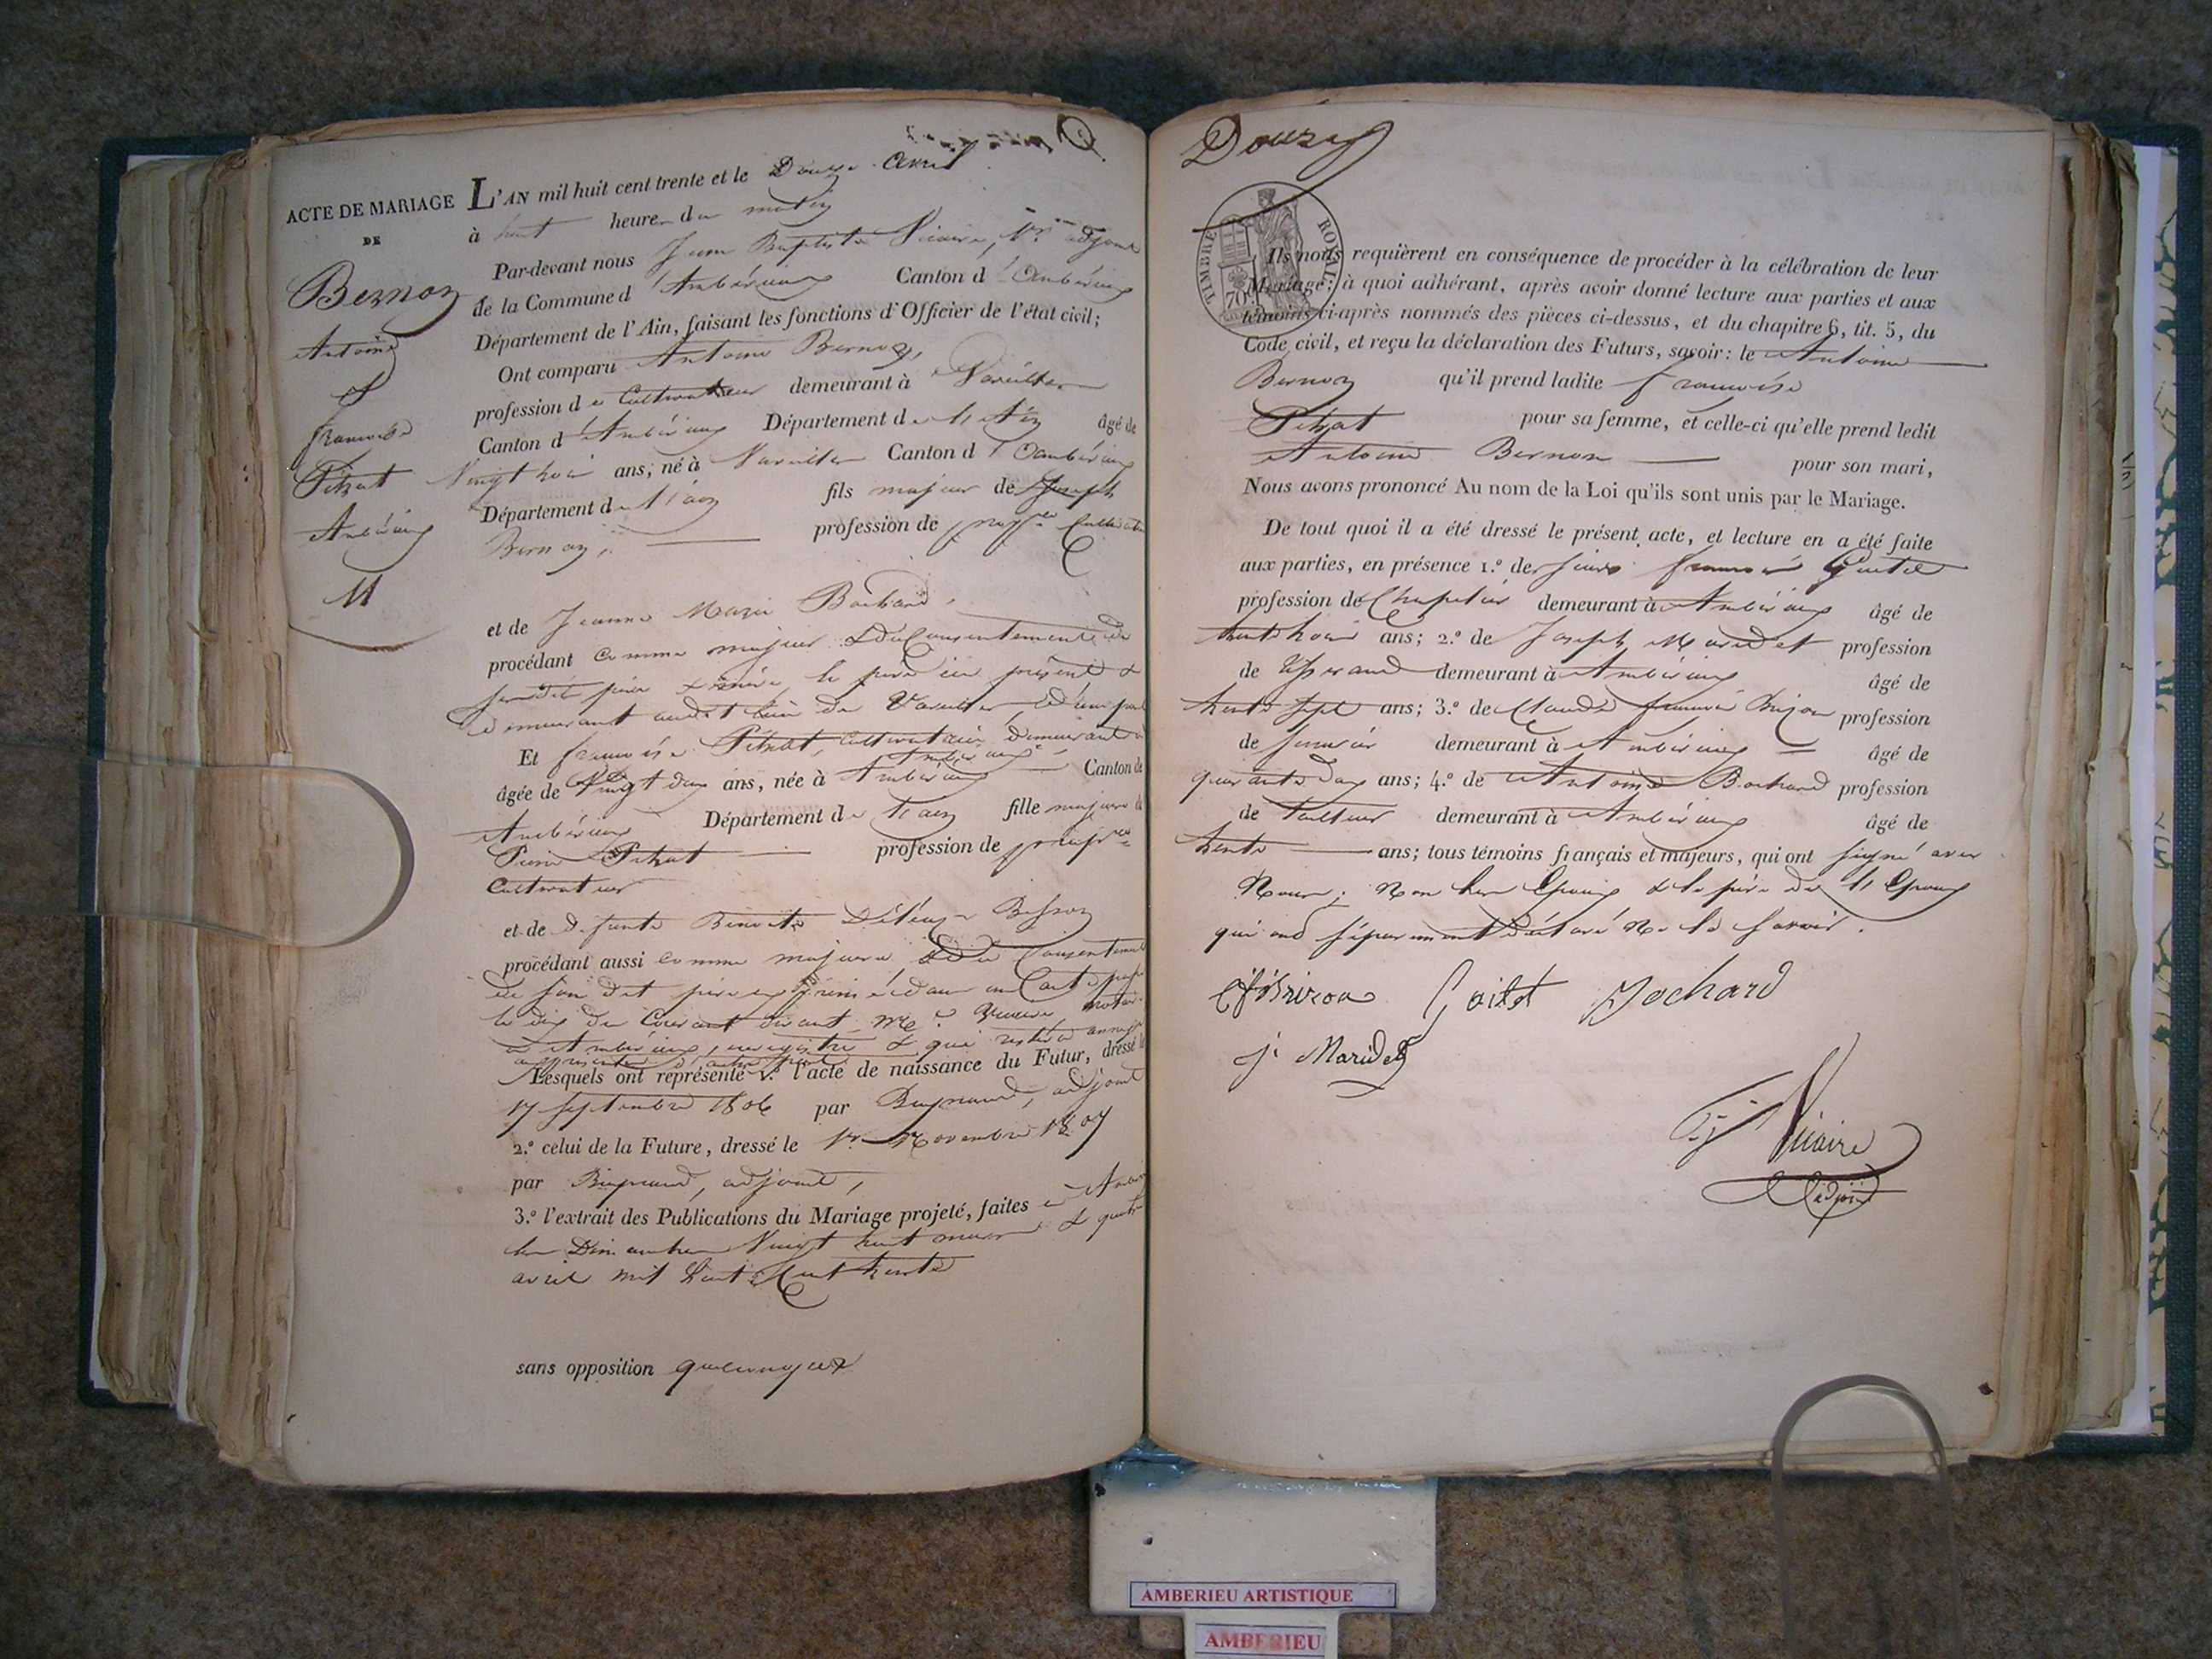 ACTE DE MARIAGE
DE
Bernoz
Antoine
&
françoise
Pitrat
Ambérieux
11
L'AN mil huit cent trente et le Douze avril
à huit heures du matin
Par-devant nous Jean Baptiste Vicaire, 1er adjoint
de la Commune d'Ambérieux Canton d'Ambérieux
Département de l'Ain, faisant les fonctions d'Officier de l'état civil;
Ont comparu Antoine Bernoz,
profession de Cultivateur demeurant à Vareilles
Canton d'Ambérieux Département de l'Ain âgé de
Vingt trois ans, né à Vareilles Canton d'Ambérieux
Département de l'ain fils majeur de Joseph
Bernoz, profession de propre Cultivateur
et de Jeanne Marie Bochard,
procédant comme majeur & du Consentement de
ses dits père & mère, le père ici présent &
demeurant audit lieu de Vareilles, d'une part
Et françoise Pitrat, Cultivatrice, demeurant à
Ambérieux
âgée de Vingt deux ans, née à Ambérieux Canton de
Ambérieux Département de l'ain fille majeure de
Pierre Pitrat profession de propre
Cultivateur
et de defunte Benoite Besson
procédant aussi comme majeure & du Consentement
de son dit père exprimé dans un acte
le dix du Courant devant Me notaire
à Ambérieux, enregistré & qui restera annexé
au présent, d'autre part
Lesquels ont représenté 1.º l'acte de naissance du Futur, dressé le
17 septembre 1806 par Buynand, adjoint
2.º celui de la Future, dressé le 1er Novembre 1807
par Buynand, adjoint,
3.º l'extrait des Publications du Mariage projeté, faites à
les Dimanches Vingt huit mars & quatre
avril mil huit Cent trente
sans opposition quelconque
Douze
TIMBRE ROYAL
70
Ils nous requièrent en conséquence de procéder à la célébration de leur
Mariage; à quoi adhérant, après avoir donné lecture aux parties et aux
témoins ci-après nommés des pièces ci-dessus, et du chapitre 6, tit. 5, du
Code civil, et reçu la déclaration des Futurs, savoir: le Antoine
Bernoz qu'il prend ladite françoise
Pitrat pour sa femme, et celle-ci qu'elle prend ledit
Antoine Bernoz pour son mari,
Nous avons prononcé Au nom de la Loi qu'ils sont unis par le Mariage.
De tout quoi il a été dressé le présent acte, et lecture en a été faite
aux parties, en présence 1.º de sieurs françois Goitet
profession de Chapelier demeurant à Ambérieux âgé de
trente trois ans; 2.º de Joseph Maridet profession
de Tisserand demeurant à Ambérieux âgé de
trente sept ans; 3.º de Claude françois Brizon profession
de demeurant à Ambérieux âgé de
quarante deux ans; 4.º de Antoine Bochard profession
de Tailleur demeurant à Ambérieux âgé de
trente ans; tous témoins français et majeurs, qui ont signé avec
Nous; Non les Epoux & le père de l'Epoux
qui ont séparément déclaré Ne le savoir.
C f Brizon Goitet Bochard
j. Maridet
Vicaire
adjoint
AMBERIEU ARTISTIQUE
AMBERIEU